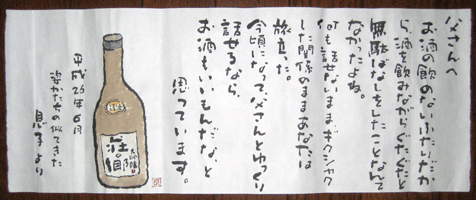 父さんへ
お酒の飲めないふたりだか
ら、酒を飲みながらぐだぐだと
無駄ばなしをしたことなんて
なかったよね。
何も話せないままギクシャク
した関係のままあなたは
旅立った。
今頃になって父さんとゆっくり
話せるなら
お酒もいいもんだな、と
思っています。
平成26年6月
姿かたちの似てきた
息子より